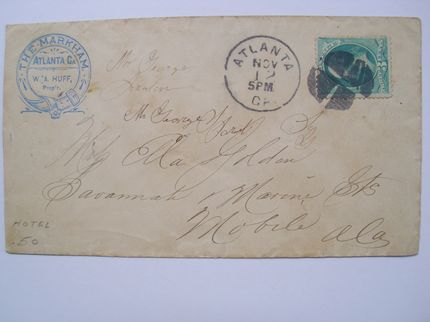 THE MARKHAM
ATLANTA GA
W. A. HUFF,
Prop'r.
ATLANTA
NOV
12
5PM
GA.
Mr George
Mr George Ford
Miss Ola Golden
Savannah & Marine Sts
Mobile Ala
HOTEL
.50